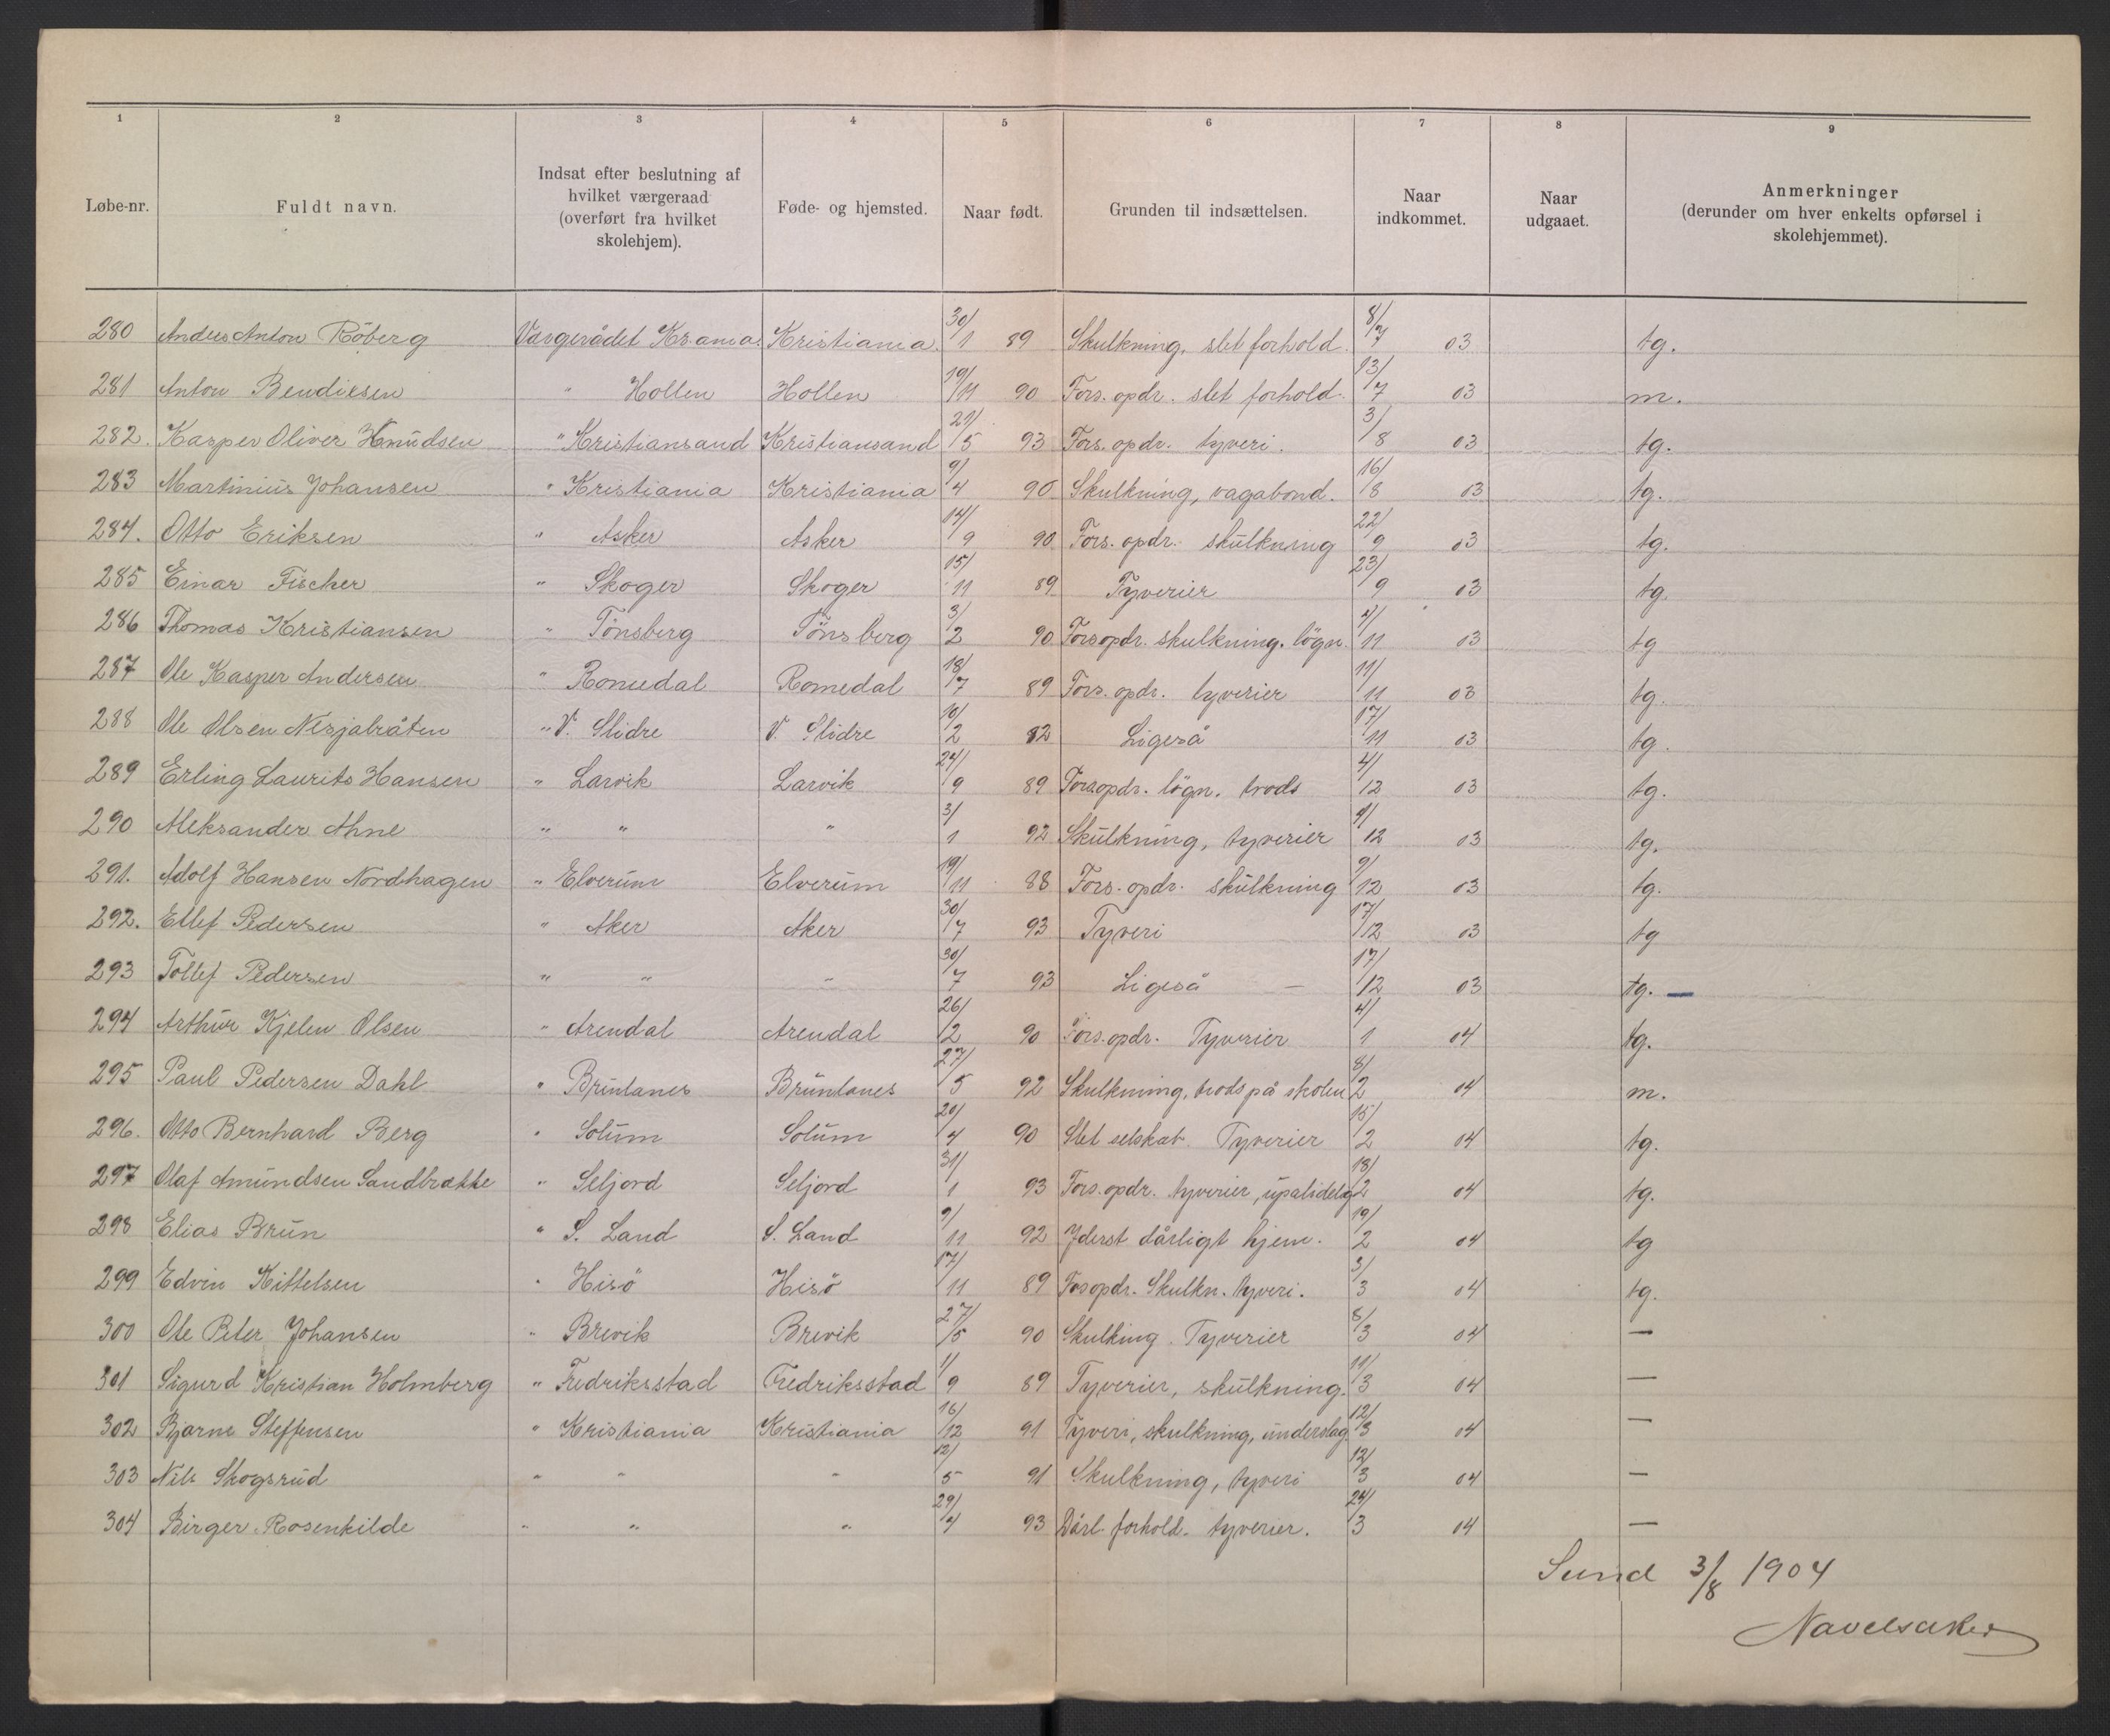 1 2 3 4 5 6 7 8 9
Løbe-nr. Fuldt navn. Indsat efter beslutning af hvilket værgeraad (overført fra hvilket skolehjem). Føde- og hjemsted. Naar født. Grunden til indsættelsen. Naar indkommet. Naar udgaaet. Anmerkninger (derunder om hver enkelts opførsel i skolehjemmet).
280 Anders Anton Röberg Værgerådet Kr.ania. Kristiania. 30/1 89 Skulkning, slet forhold. 8/7 03 tg.
281 Anton Bendiksen " Hollen Hollen 19/11 90 Fors. opdr. slet forhold. 13/7 03 m.
282. Kasper Oliver Knudsen " Kristiansand Kristiansand 5 93 Fors. opdr. tyveri. 3/8 03 tg.
283 Martinius Johansen " Kristiania Kristiania 9/4 90 Skulkning, vagabond. 16/8 03 tg.
284. Otto Eriksen " Asker Asker 14/9 90 Fors. opdr. skulkning 22/9 03 tg.
285 Einar Fischer " Skoger Skoger 15/11 89 Tyverier 23/9 03 tg.
286 Thomas Kristiansen " Tönsberg Tönsberg 3/2 90 Forsopdr. skulkning. lögn. 4/11 03 tg
287 Ole Kasper Andersen " Romedal Romedal 18/7 89 Fors. opdr. tyverier 11/11 03 tg.
288 Ole Olsen Nesjabråten " V. Slidre V. Slidre 10/2 82 Ligeså 17/11 03 tg.
289 Erling Laurits Hansen " Larvik Larvik 24/9 89 Forsopdr. lögn. trods 4/12 03 tg.
290 Aleksander Ahne " " " 3/1 92 Skulkning, tyverier 4/12 03 tg.
291. Adolf Hansen Nordhagen " Elverum Elverum 19/11 88 Fors. opdr. skulkning 9/12 03 tg.
292. Ellef Pedersen " Aker Aker 30/7 93 Tyveri 17/12 03 tg
293 Tollef Pedersen " " " 30/7 93 Ligeså — 17/12 03 tg. —
294 Arthur Kjelen Olsen " Arendal Arendal 26/2 90 Fors. opdr. Tyverier 4/1 04 tg.
295 Paul Pedersen Dahl " Brunlanes Brunlanes 27/5 92 Skulkning, trods på skolen 8/2 04 m.
296. Otto Bernhard Berg " Solum Solum 20/4 90 Slet selskab. Tyverier 15/2 04 tg.
297 Olaf Amundsen Sandbrække " Seljord Seljord 31/1 93 Fors. opdr. tyverier, upalidelg 18/2 04 tg.
298 Elias Brun " S. Land S. Land 9/11 92 Yderst dårligt hjem. 19/2 04 tg
299 Edvin Kittelsen " Hisö Hisö 17/11 89 Fosopdr. Skulkn. tyveri. 3/3 04 tg.
300 Ole Peter Johansen " Brevik Brevik 27/5 90 Skulking. Tyverier 8/3 04 —
301 Sigurd Kristian Holmberg " Fredriksstad Fredriksstad 1/9 89 Tyverier, skulkning. 11/3 04 —
302 Bjarne Steffensen " Kristiania Kristiania 16/12 91 Tyveri, skulkning, underslag. 12/3 04 —
303 Nils Skogsrud " " " 12/5 91 Skulkning, tyveri 12/3 04 —
304 Birger Rosenkilde " " " 29/4 93 Dårl. forhold. tyverier. 24/3 04 —
Sund 3/8 1904
Navelsaker